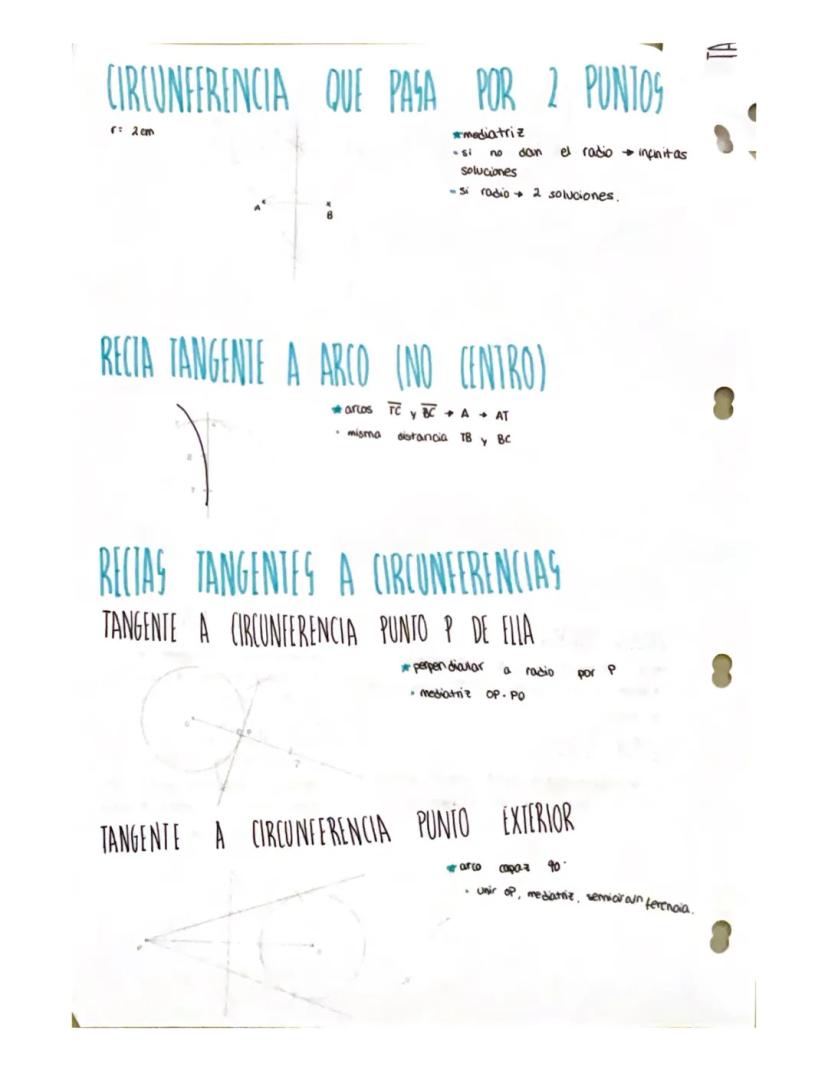 CIRCUNFERENCIA QUE PASA POR 2 PUNTOS
r: 2 cm
★mediatriz
- si no dan el radio → infinitas
soluciones
- si radio → 2 soluciones.
A
B
RECTA TANGENTE A ARCO (NO CENTRO)
★arcos TC y BC → A → AT
• misma distancia TB y BC
RECTAS TANGENTES A CIRCUNFERENCIAS
TANGENTE A CIRCUNFERENCIA PUNTO P DE ELLA
★perpendicular a radio por P
• mediatriz OP - PO
TANGENTE A CIRCUNFERENCIA PUNTO EXTERIOR
★arco capaz 90°
• unir OP, mediatriz, semicircunferencia.